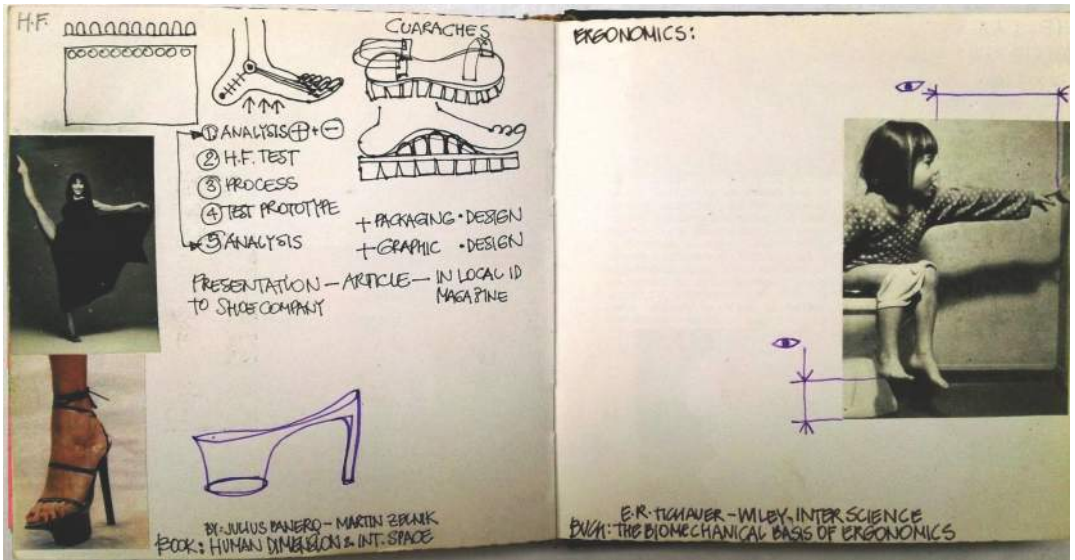 H.F.
CUARACHES
① ANALYSIS ⊕ + ⊖
② H.F. TEST
③ PROCESS
④ TEST PROTOTYPE
⑤ ANALYSIS
+ PACKAGING • DESIGN
+ GRAPHIC • DESIGN
PRESENTATION — ARTICLE — IN LOCAL ID
TO SHOE COMPANY
MAGAZINE
BY: JULIUS PANERO - MARTIN ZELNIK
BOOK: HUMAN DIMENSION & INT. SPACE
ERGONOMICS:
E.R. TICHAUER - WILEY, INTER SCIENCE
BUCH: THE BIOMECHANICAL BASIS OF ERGONOMICS